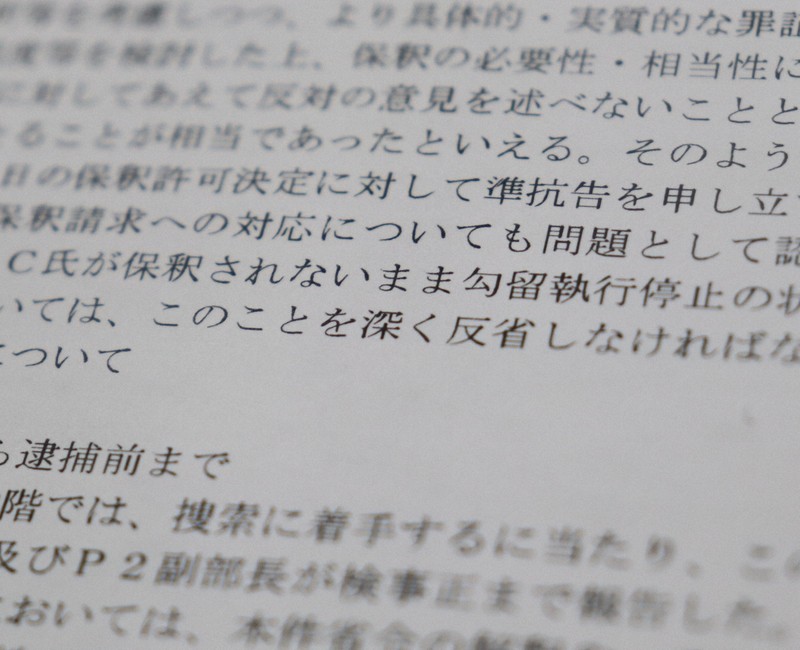 等を考慮しつつ、より具体的・実質的な罪証
度等を検討した上、保釈の必要性・相当性に
に対してあえて反対の意見を述べないことと
ることが相当であったといえる。そのよう
日の保釈許可決定に対して準抗告を申し立て
保釈請求への対応についても問題として認
C氏が保釈されないまま勾留執行停止の状
いては、このことを深く反省しなければな
について
ら逮捕前まで
階では、捜索に着手するに当たり、この
及びP2副部長が検事正まで報告した。
においては、本件省令の解釈